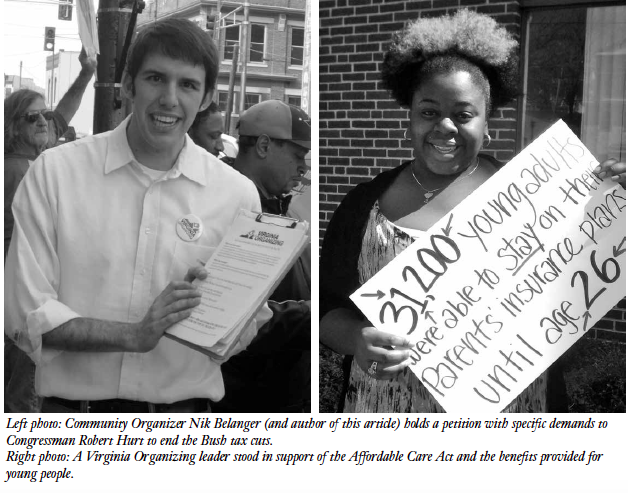 VIRGINIA
ORGANIZING
31,200 young adults
were able to stay on their
parents insurance plans
until age 26
Left photo: Community Organizer Nik Belanger (and author of this article) holds a petition with specific demands to
Congressman Robert Hurt to end the Bush tax cuts.
Right photo: A Virginia Organizing leader stood in support of the Affordable Care Act and the benefits provided for
young people.